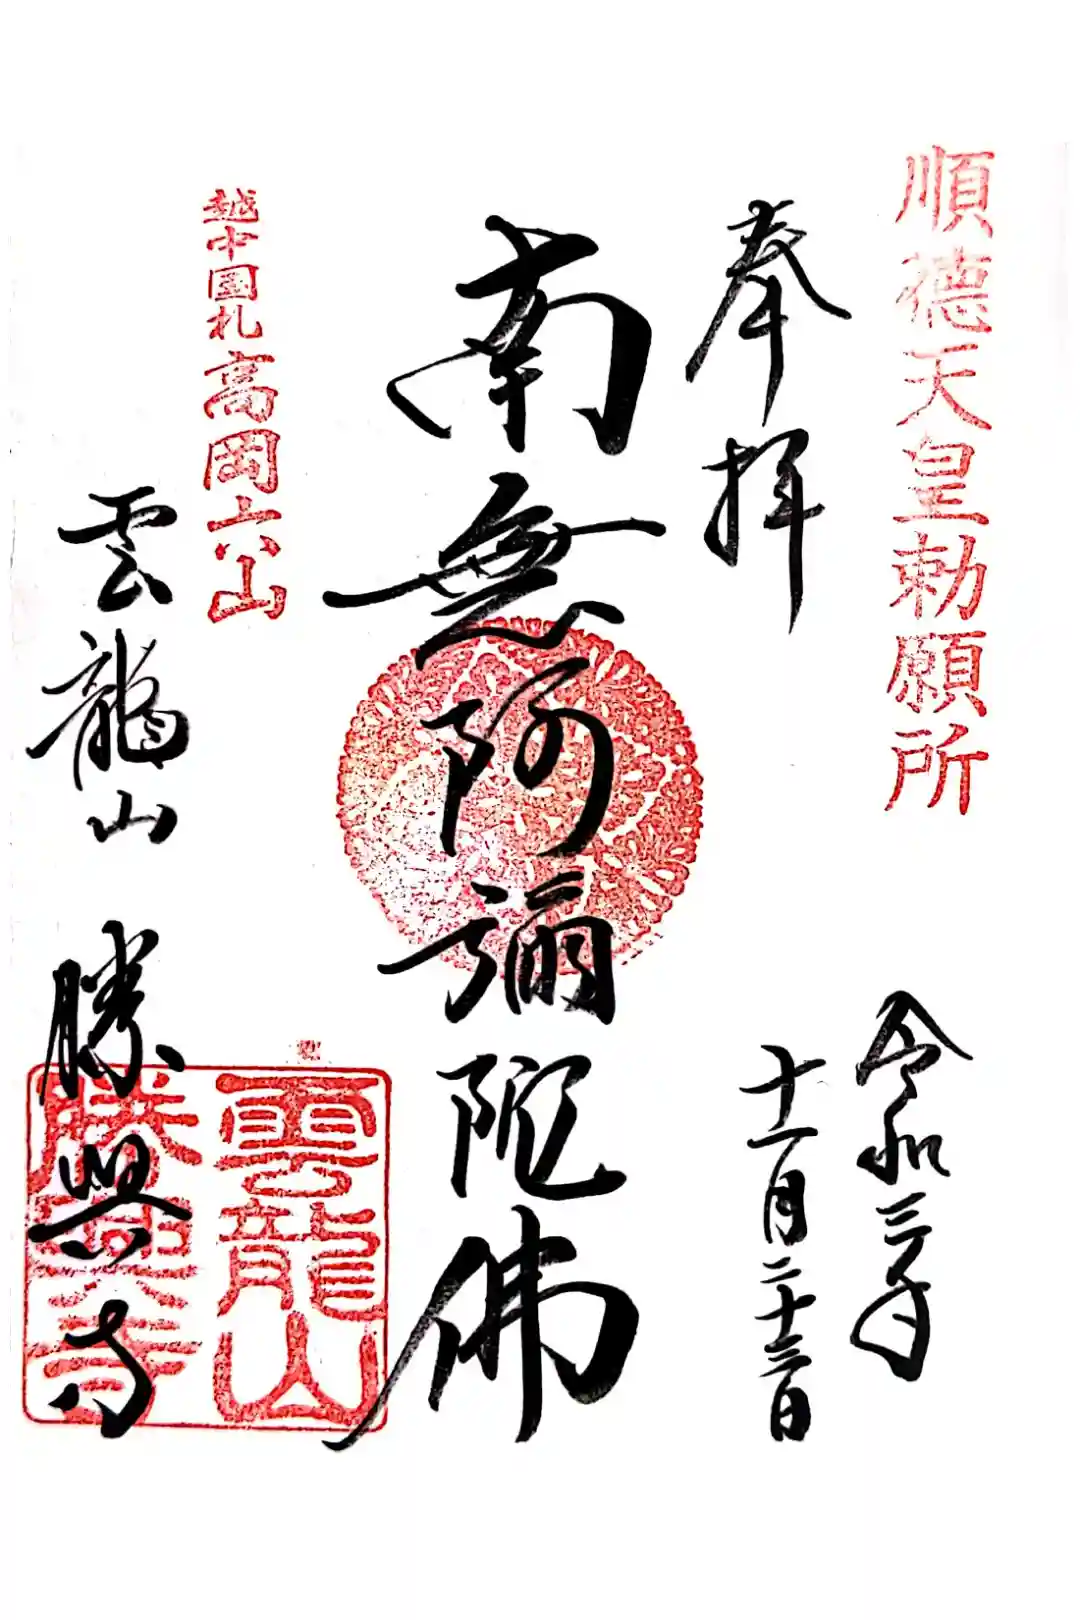 順德天皇勅願所
奉拝
令和三年
十一月二十三日
南無阿彌陀佛
越中国札 高岡六山
雲龍山 勝興寺
雲龍山
勝興寺